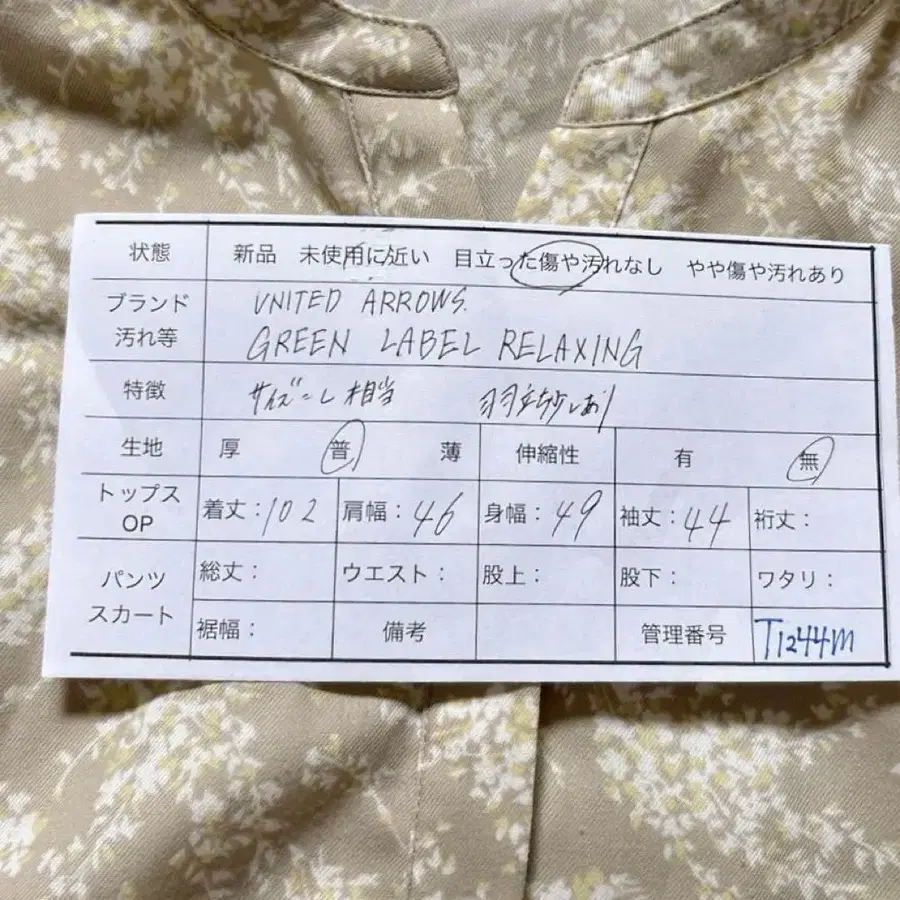 状態 新品 未使用に近い 目立った傷や汚れなし やや傷や汚れあり
ブランド 汚れ等 UNITED ARROWS.
GREEN LABEL RELAXING
特徴 サイズ 相当 少しあり
生地 厚 普 薄 伸縮性 有 無
トップス OP 着丈：102 肩幅：46 身幅：49 袖丈：44 裄丈：
パンツ スカート 総丈： ウエスト： 股上： 股下： ワタリ：
裾幅： 備考 管理番号 T1244M